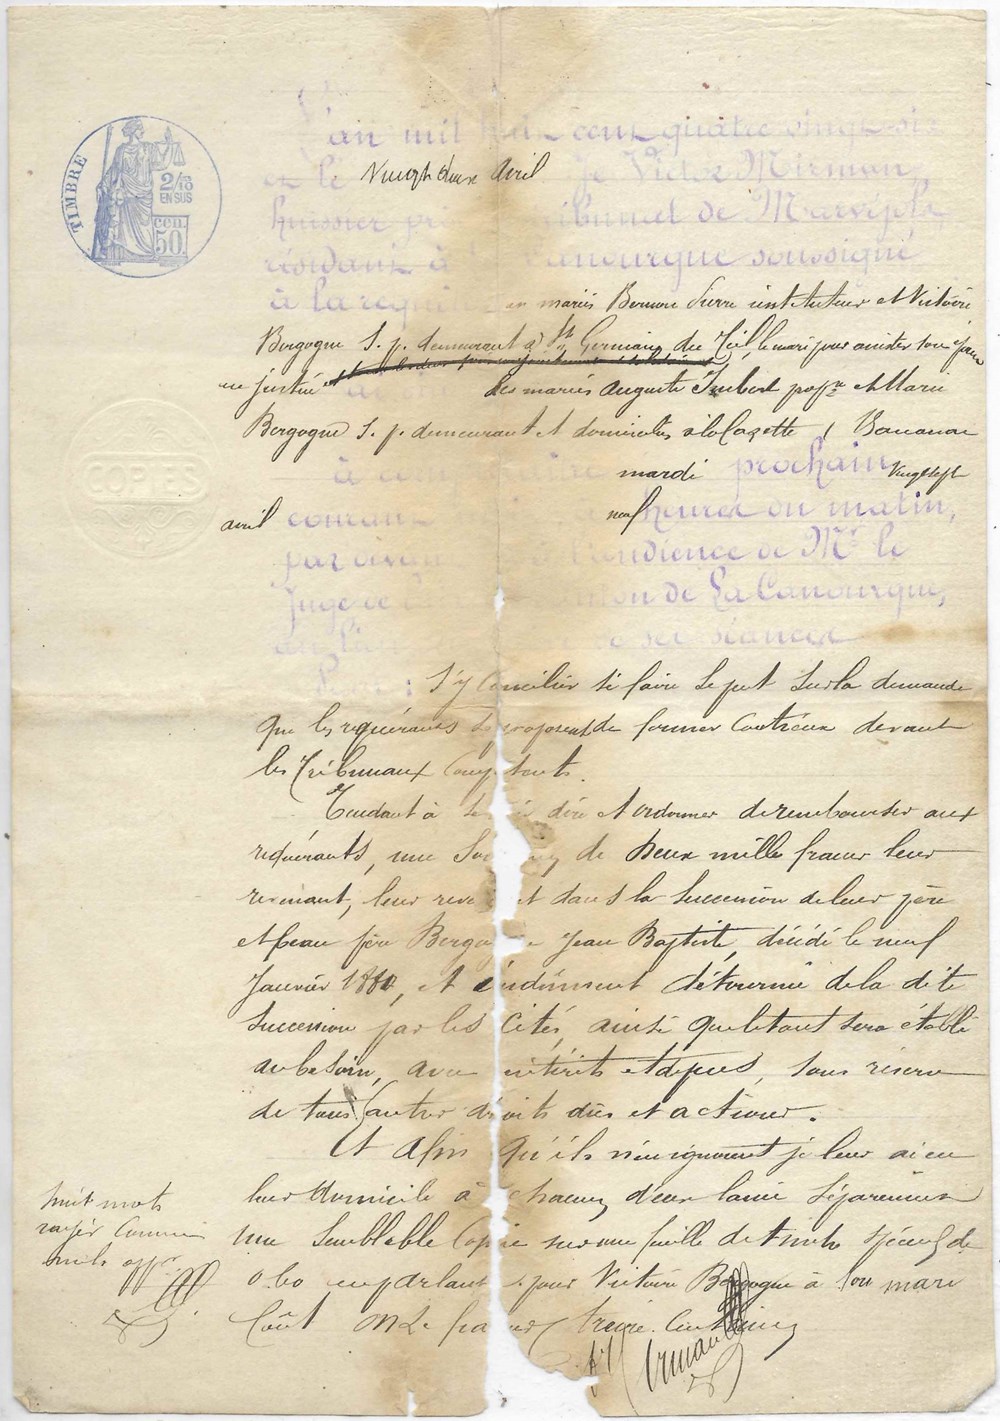 TIMBRE
2/10
EN SUS
50
L'an mil huit cent quatre vingt six
et le vingt deux avril Je Victor Mirman
huissier tribunal de Marvejols
résidant à la Canourgue soussigné
à la requ mariés Pierre instituteur et Victoire
Borgogne S. p. demeurant à St Germain du Teil, le mari pour assister son épouse
en justice des mariés Auguste Imbert propre et Marie
Borgogne S. p. demeurant et domiciliés à la Cazette, Banassac
à comp mardi prochain vingt sept
avril courant neuf heures du matin,
par devan l'audience de Mr le
Juge de canton de La Canourgue,
au lieu de ses séances
Pour :
S'y Concilier si faire se peut sur la demande
que les requérants se proposent de former contre eux devant
les Tribunaux Compétents.
Tendant à dire et ordonner de rembourser aux
requérants, une So de Deux mille francs leur
revenant, leur reve t dans la succession de leur père
et beau père Borgo e Jean Baptiste, décédé le neuf
Janvier et indûment détournée de la dite
succession par les Cités, ainsi que le tout sera établi
au besoin, avec intérêts et dépens, sous réserve
de tous autres droits dûs et actions.
Et Afin qu'ils n'en ignorent je leur ai en
leur domicile à chacun d'eux laissé séparément
une Semblable Copie sur une feuille de timbre spécial de
0.60 en parlant pour Victoire Borgogne à son mari
Coût francs treize Centimes
Mirman
huit mots
rayés comme
nuls appr.